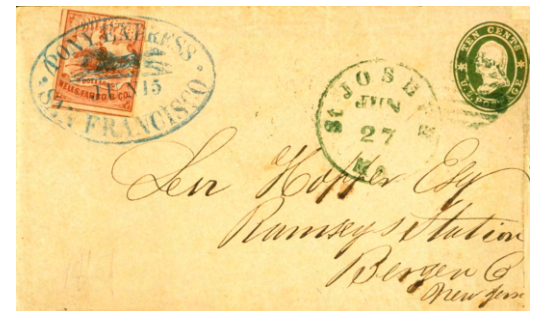 PONY EXPRESS
JUN 15
SAN FRANCISCO
WELLS, FARGO & CO.
St JOSEPH
JUN
27
Mo.
TEN CENTS
U.S. POSTAGE
Hopper Esq
Ramseys Station
Bergen Co
New Jers